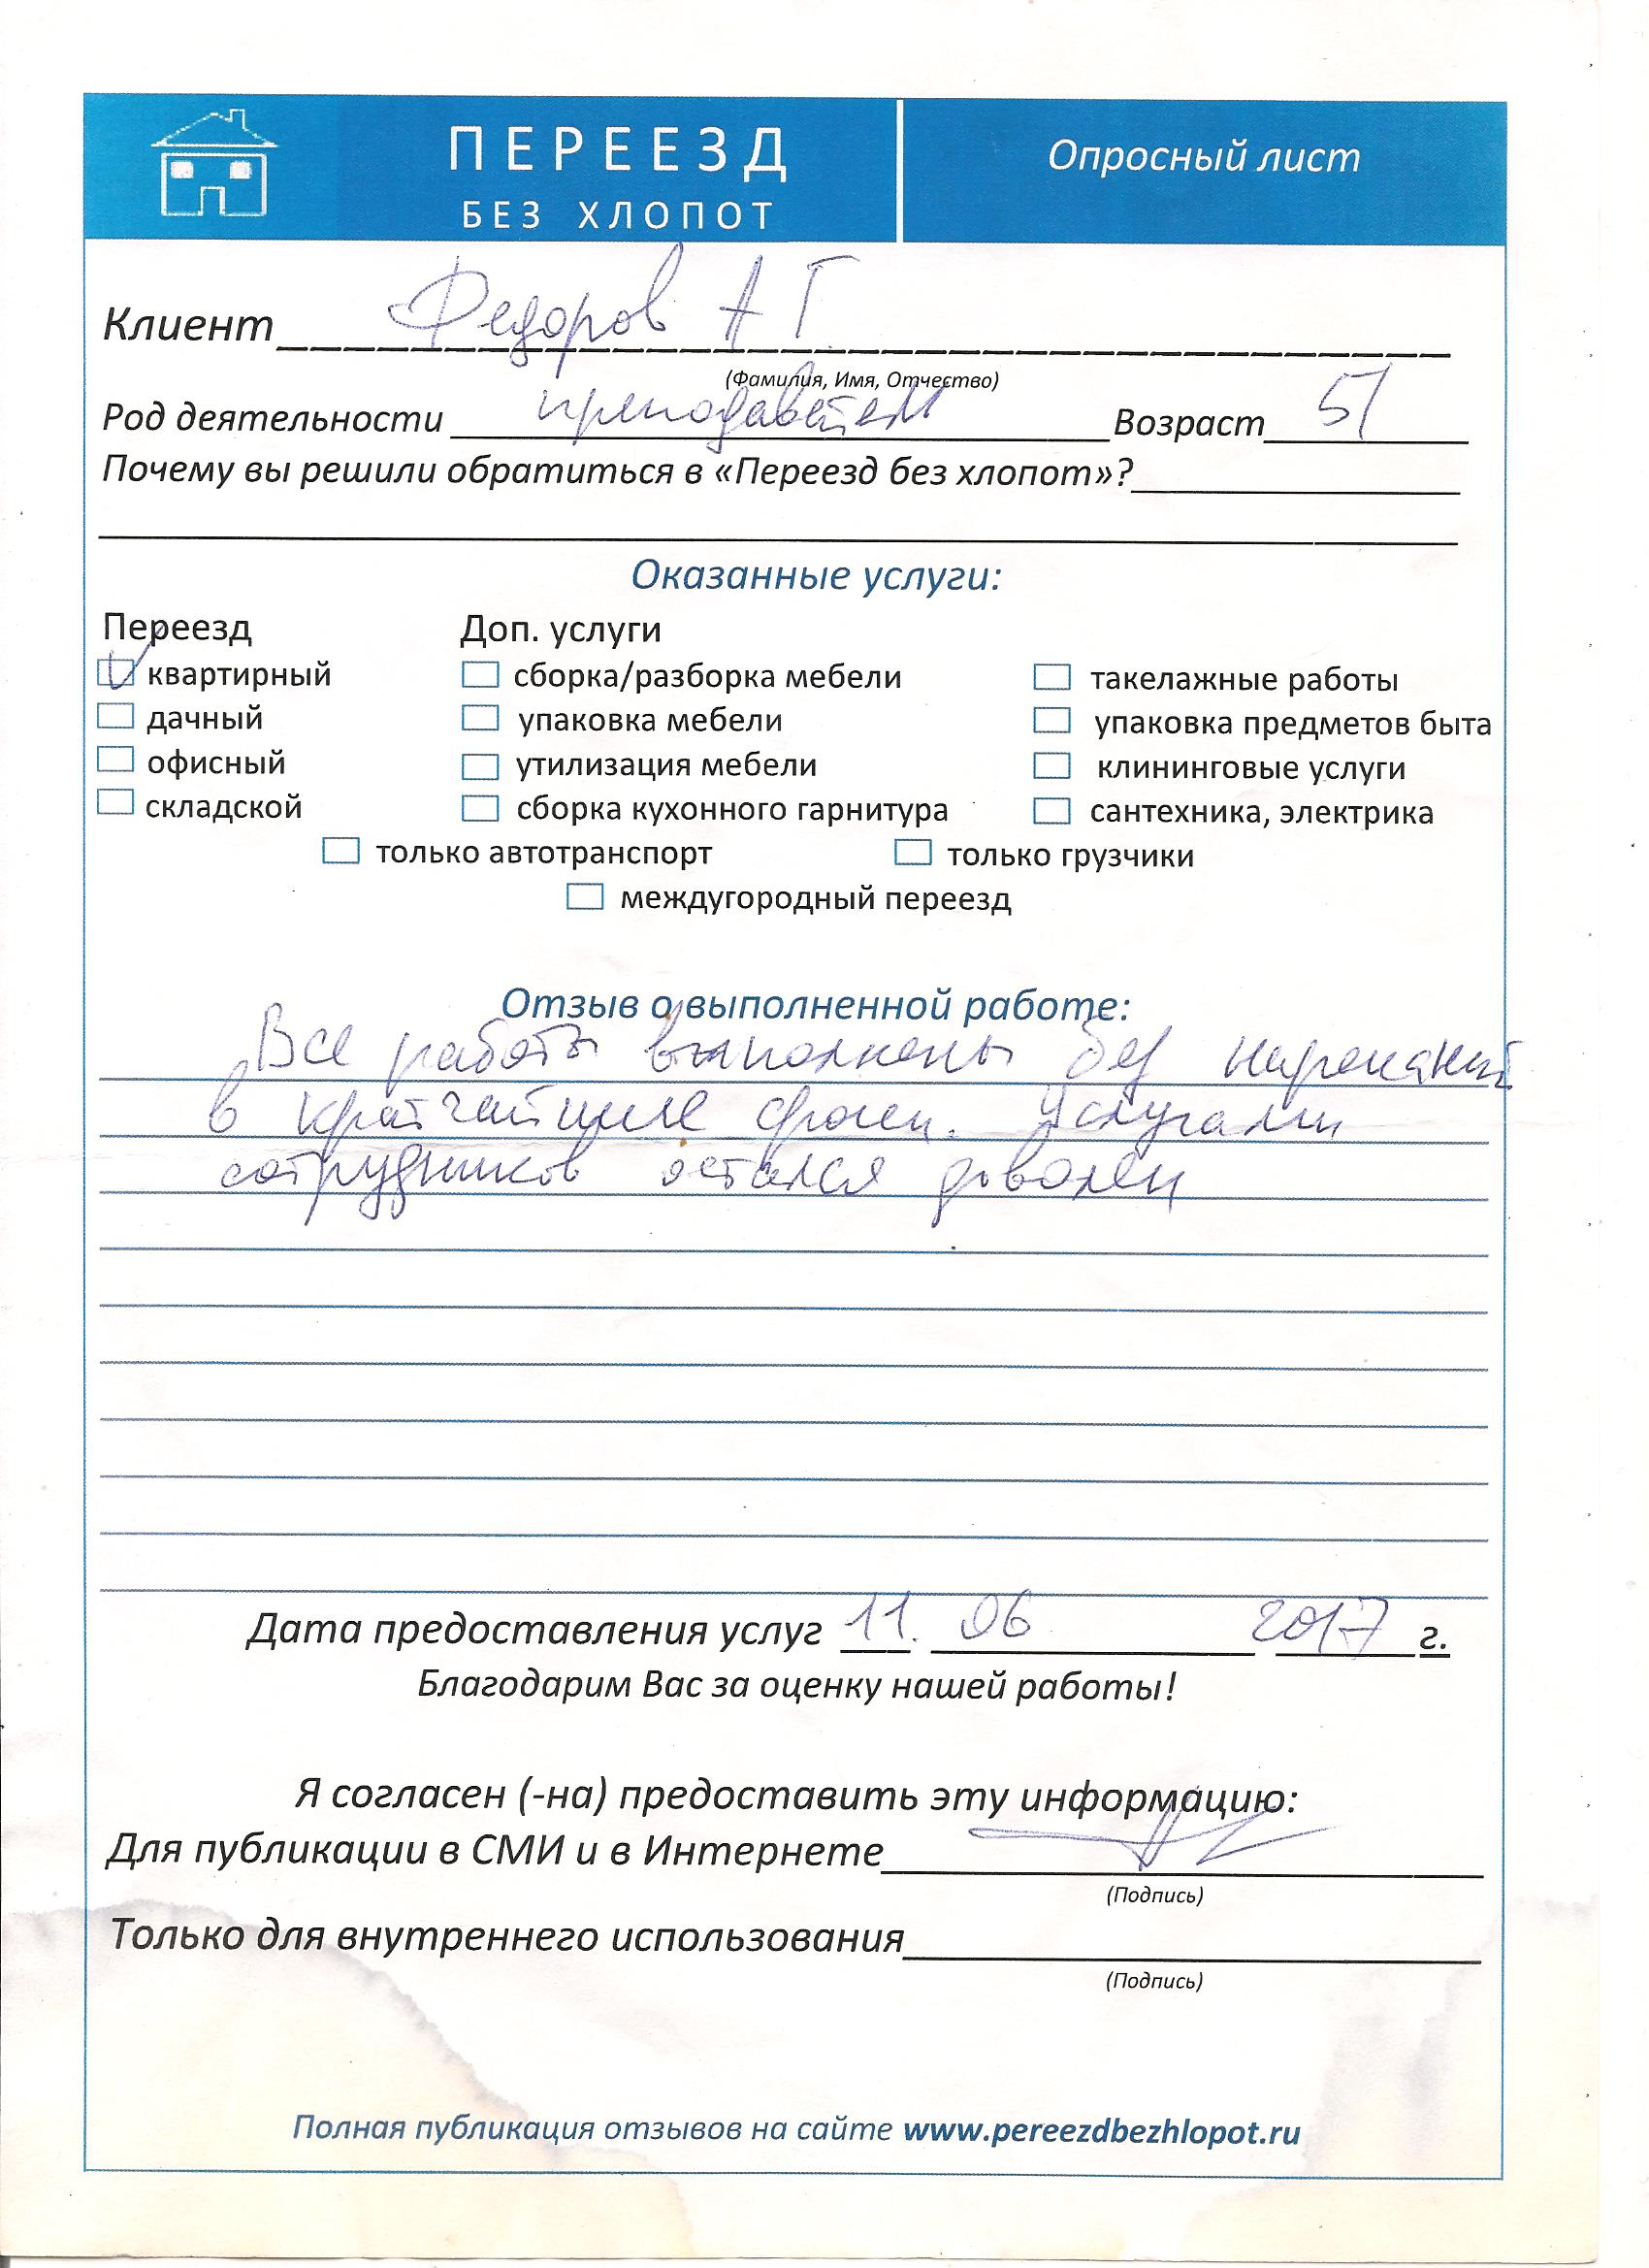 ПЕРЕЕЗД
БЕЗ ХЛОПОТ
Опросный лист
Клиент Федоров А Г
(Фамилия, Имя, Отчество)
Род деятельности преподаватель Возраст 51
Почему вы решили обратиться в «Переезд без хлопот»?
Оказанные услуги:
Переезд Доп. услуги
квартирный сборка/разборка мебели такелажные работы
дачный упаковка мебели упаковка предметов быта
офисный утилизация мебели клининговые услуги
складской сборка кухонного гарнитура сантехника, электрика
только автотранспорт только грузчики
междугородный переезд
Отзыв о выполненной работе:
Все работы выполнены без нареканий
в кратчайшие сроки. Услугами
сотрудников остался доволен
Дата предоставления услуг 11. 06 2017 г.
Благодарим Вас за оценку нашей работы!
Я согласен (-на) предоставить эту информацию:
Для публикации в СМИ и в Интернете
(Подпись)
Только для внутреннего использования
(Подпись)
Полная публикация отзывов на сайте www.pereezdbezhlopot.ru